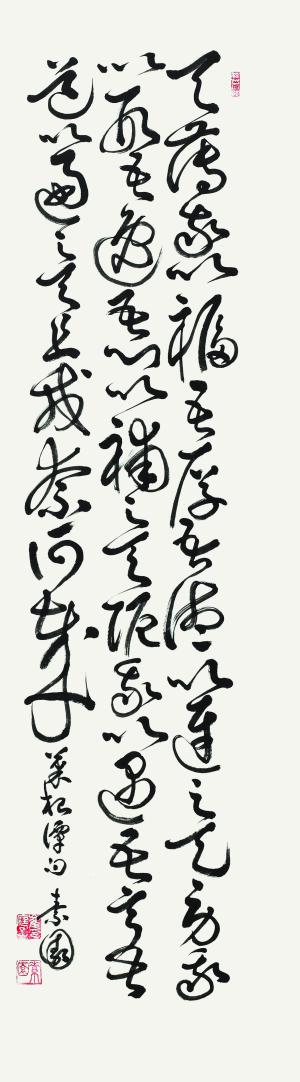 天薄我以福吾厚吾德以迓之天勞我
以形吾逸吾心以補之天阨我以遇吾亨吾
道以通之天且我奈何哉
菜根譚句 素園